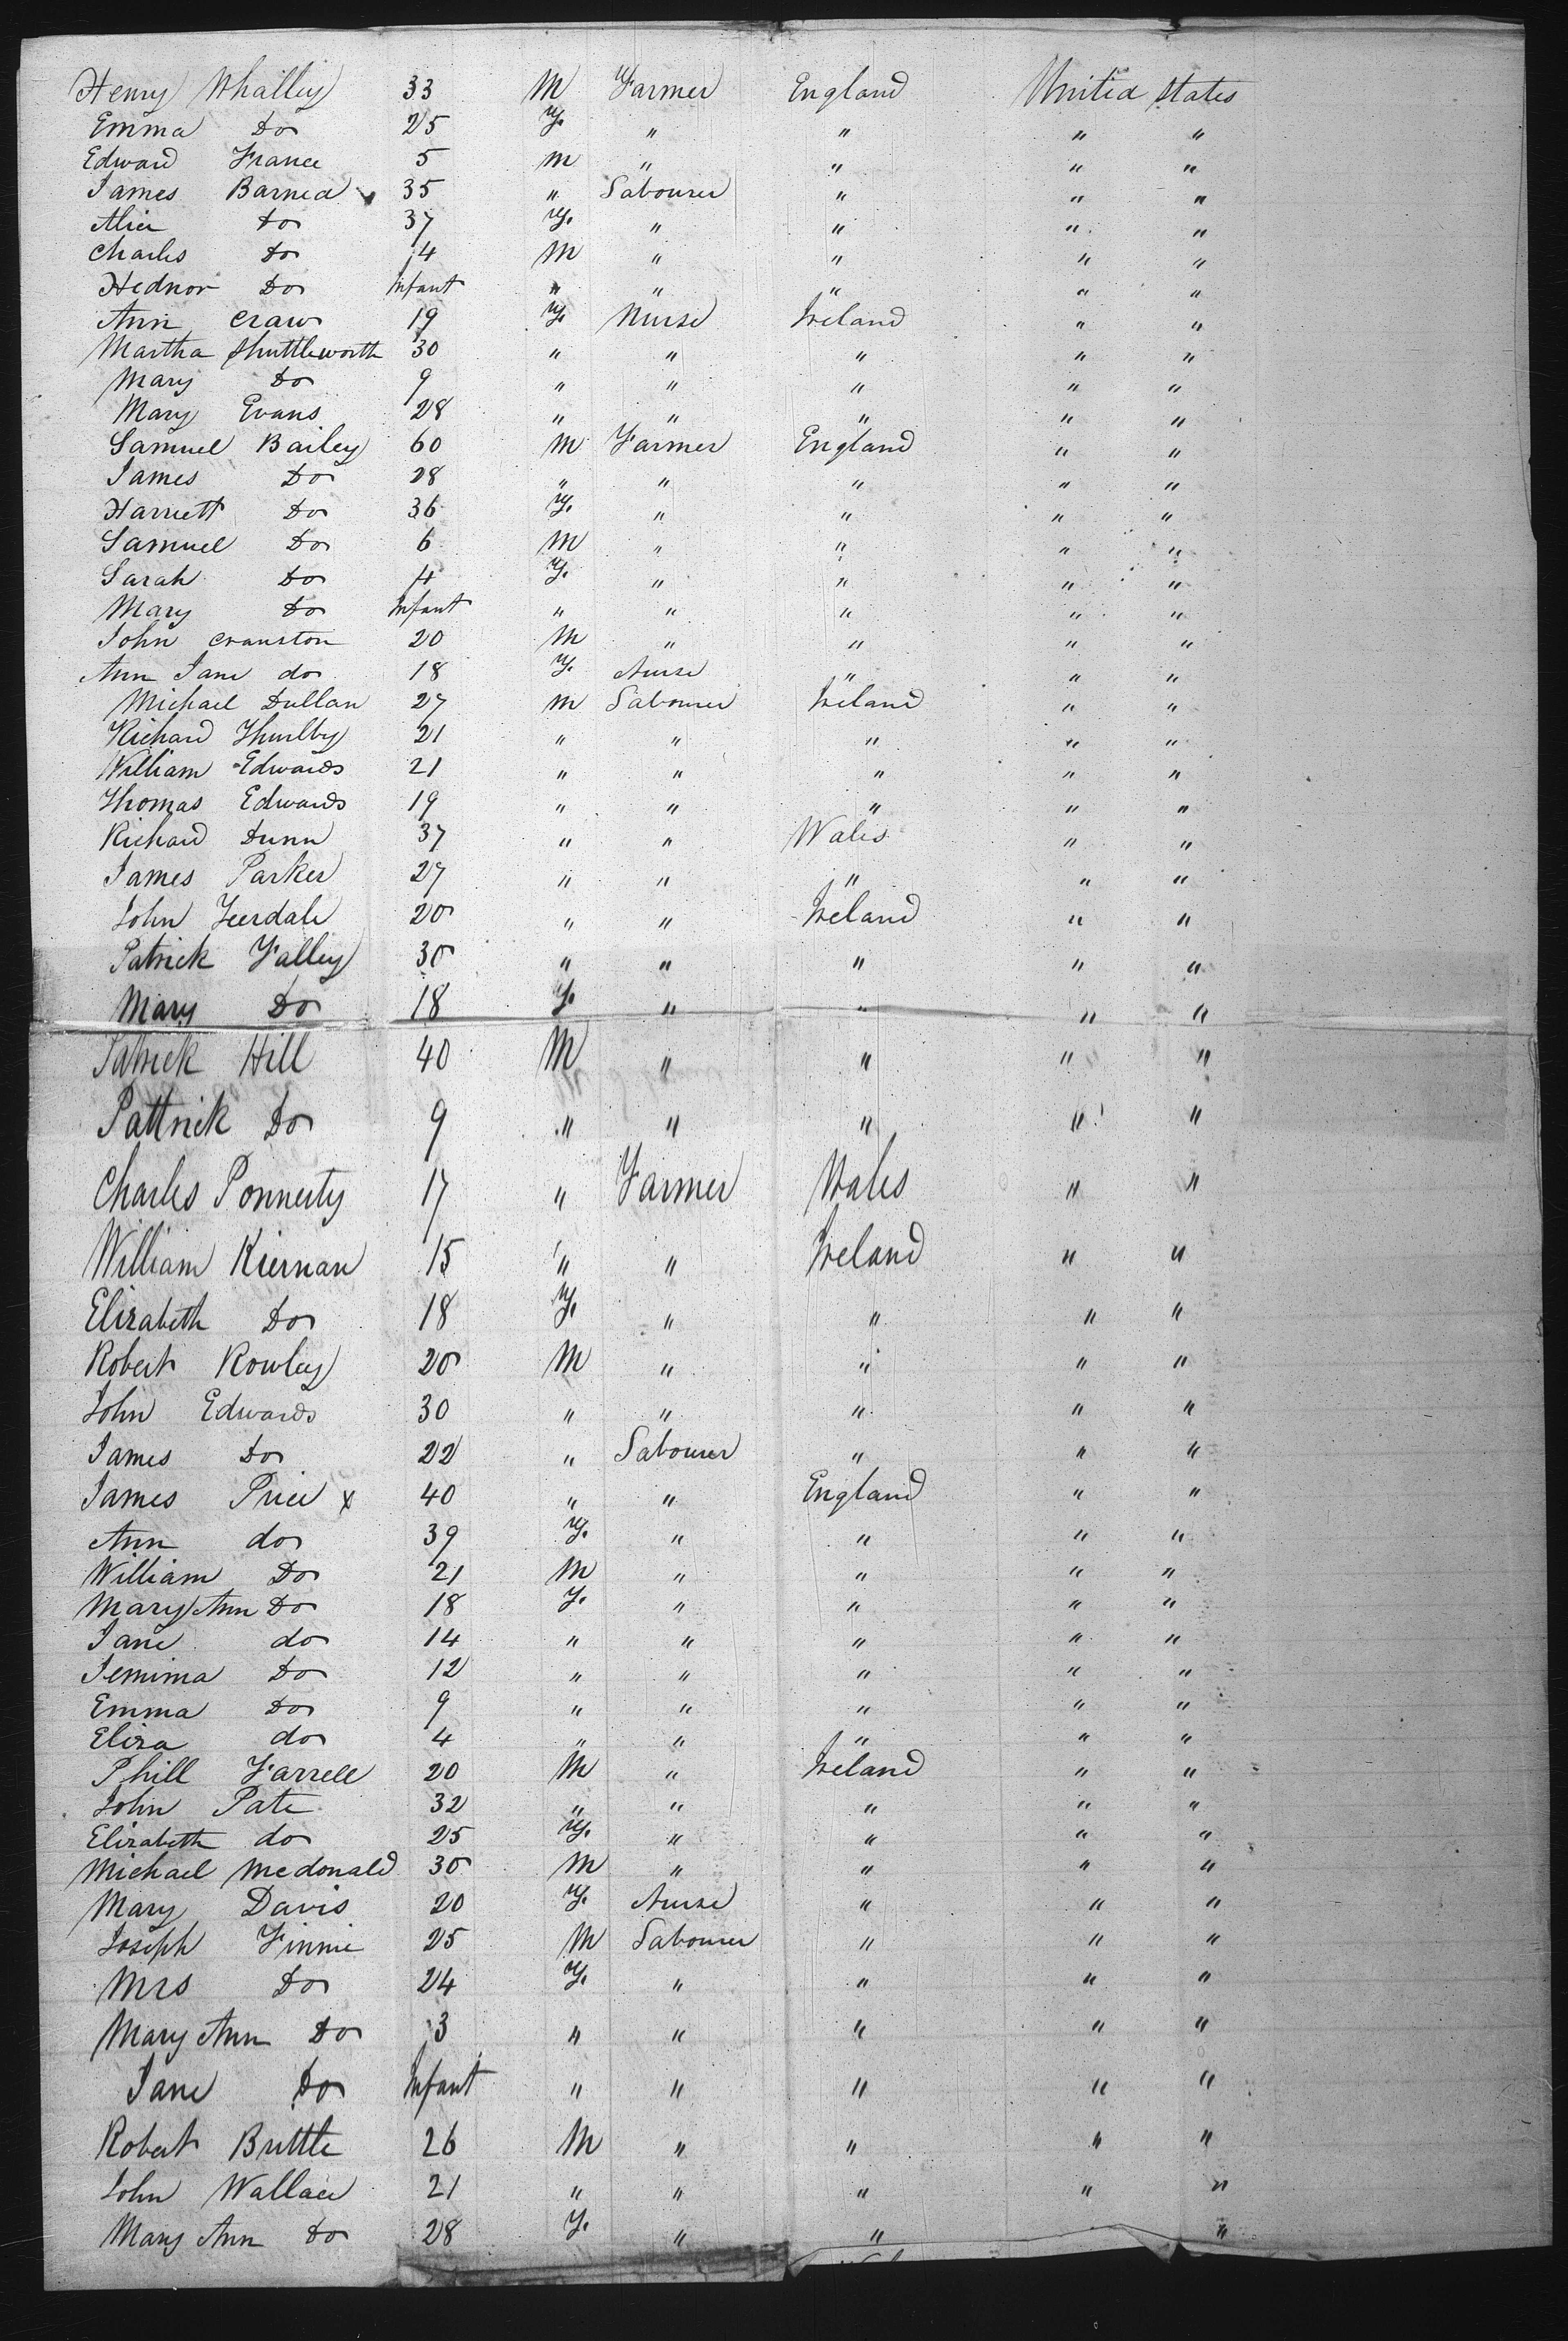 Henry Whalley 33 M Farmer England United States
Emma Do 25 F. " " " "
Edward France 5 M " " " "
James Barned 35 " Labourer " " "
Alice Do 37 F. " " " "
Charles Do 4 M " " " "
Hednor Do Infant " " " " "
Ann Craw 19 F. Nurse Ireland " "
Martha Shuttleworth 30 " " " " "
Mary Do 9 " " " " "
Mary Evans 28 " " " " "
Samuel Bailey 60 M Farmer England " "
James Do 28 " " " " "
Harriett Do 36 F. " " " "
Samuel Do 6 M " " " "
Sarah Do 4 F. " " " "
Mary Do Infant " " " " "
John Cranston 20 M " " " "
Ann Jane do 18 F. Nurse " " "
Michael Dullan 27 M Labourer Ireland " "
Richard Thurlby 21 " " " " "
William Edwards 21 " " " " "
Thomas Edwards 19 " " " " "
Richard Dunn 37 " " Wales " "
James Parker 27 " " " " "
John Teerdale 20 " " Ireland " "
Patrick Falley 30 " " " " "
Mary Do 18 F. " " " "
Patrick Hill 40 M " " " "
Pattrick Do 9 " " " " "
Charles Ponnerty 17 " Farmer Wales " "
William Kiernan 15 " " Ireland " "
Elizabeth Do 18 F. " " " "
Robert Rowley 20 M " " " "
John Edwards 30 " " " " "
James Do 22 " Labourer " " "
James Price x 40 " " England " "
Ann do 39 F. " " " "
William Do 21 M " " " "
Mary Ann Do 18 F. " " " "
Jane do 14 " " " " "
Jemima Do 12 " " " " "
Emma Do 9 " " " " "
Eliza do 4 " " " " "
Phill Farrell 20 M " Ireland " "
John Pate 32 " " " " "
Elizabeth do 25 F. " " " "
Michael Mcdonald 30 M " " " "
Mary Davis 20 F. Nurse " " "
Joseph Finnie 25 M Labourer " " "
Mrs Do 24 F. " " " "
Mary Ann Do 3 " " " " "
Jane Do Infant " " " " "
Robert Brittle 26 M " " " "
John Wallace 21 " " " " "
Mary Ann Do 28 F. " " "